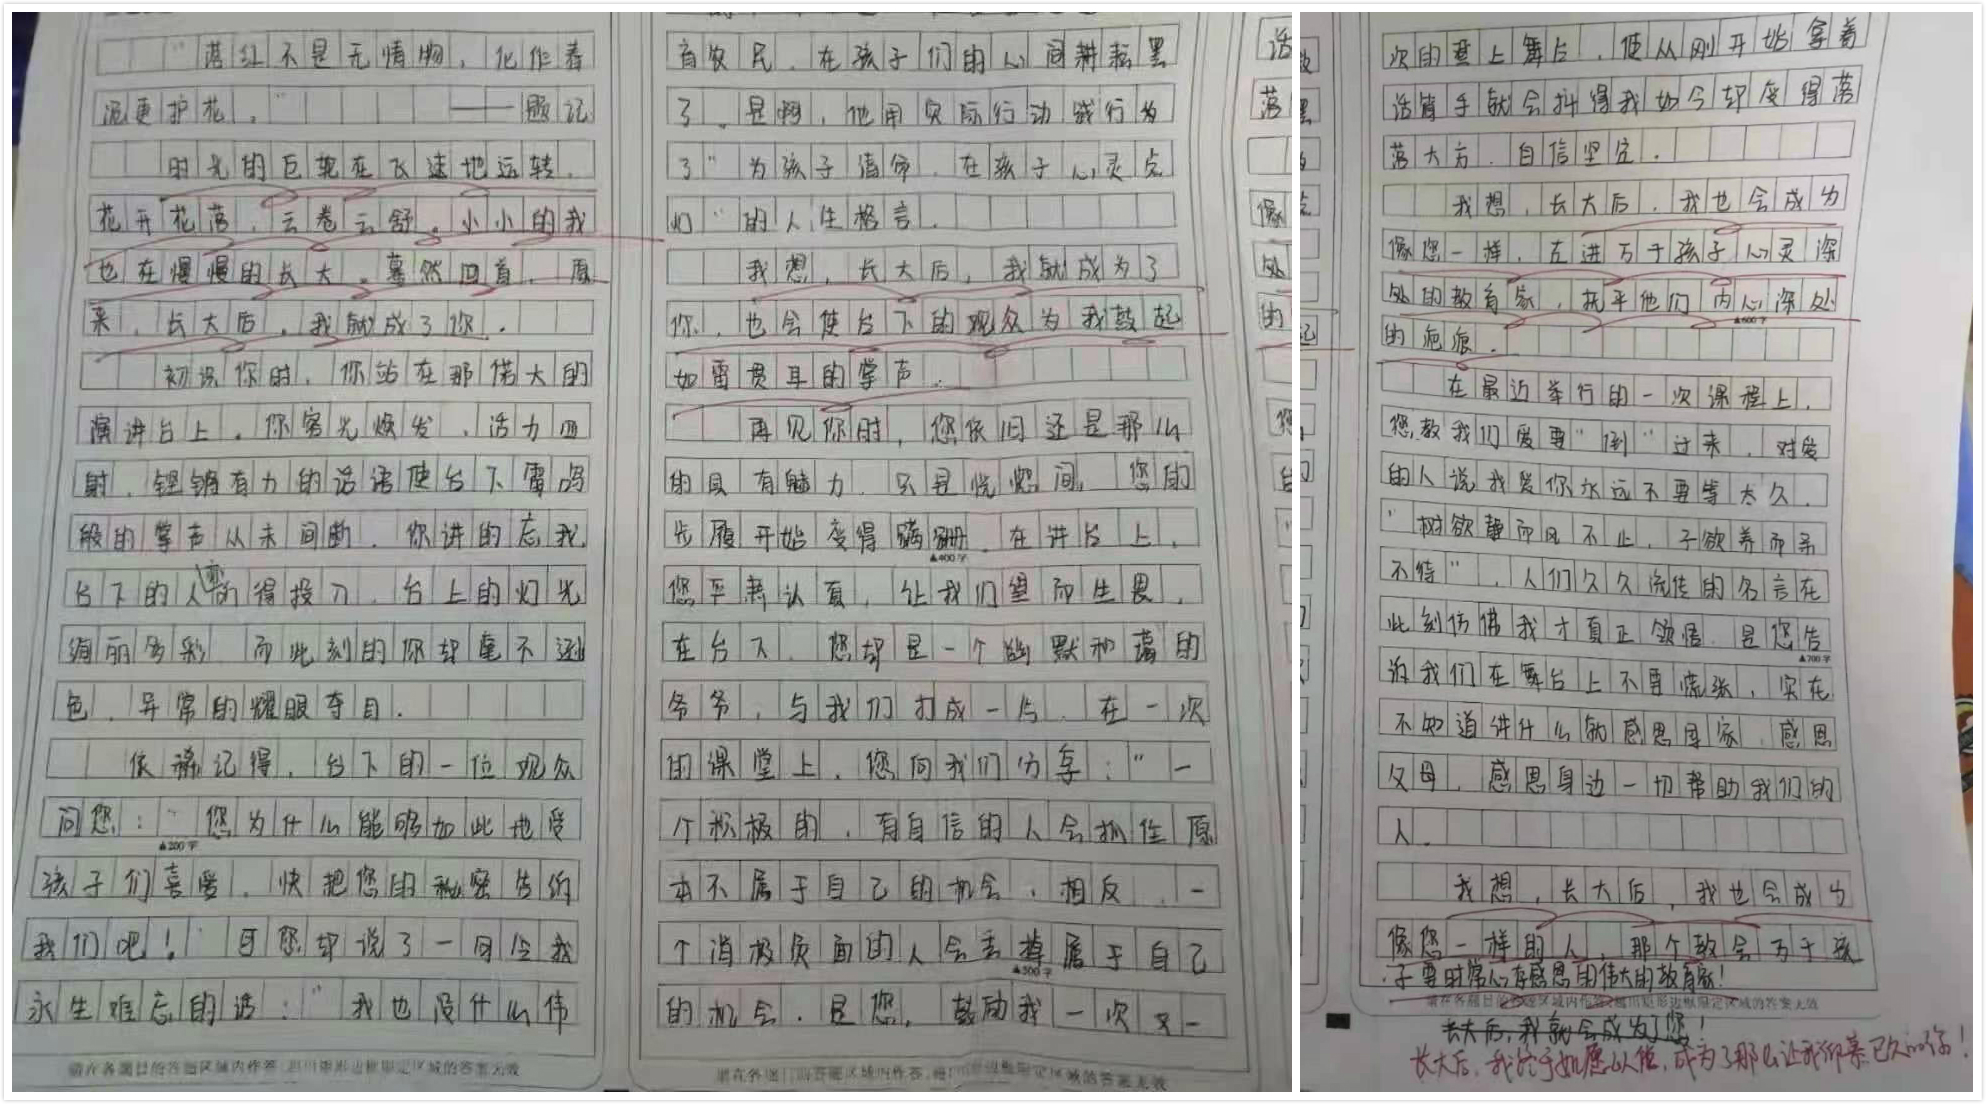 “落红不是无情物，化作春
泥更护花。”——题记
时光的巨轮在飞速地运转，
花开花落，云卷云舒。小小的我
也在慢慢的长大。蓦然回首，原
来，长大后，我就成了你.
初识你时，你站在那偌大的
演讲台上。你容光焕发，活力四
射，铿锵有力的话语使台下雷鸣
般的掌声从未间断，你讲的忘我，
台下的人 得投入，台上的灯光
绚丽多彩 而此刻的你却毫不逊
色，异常的耀眼夺目.
依稀记得，台下的一位观众
问您：“您为什么能够如此地受
孩子们喜爱，快把您的秘密告诉
我们吧！” 您却说了一句令我
永生难忘的话：“我也没什么伟
▲200字
请在各题目的答题区域内作答，超出矩形边框限定区域的答案无效
育农民，在孩子们的心间耕耘罢
了。是啊，他用实际行动践行为
了“为孩子请命，在孩子心灵点
灯”的人生格言.
我想，长大后，我就成为了
你，也会使台下的观众为我鼓起
如雷贯耳的掌声.
再见你时，您依旧还是那么
的具有魅力，只是恍惚间，您的
步履开始变得蹒跚，在讲台上，
▲400字
您平 认真，让我们望而生畏，
在台下，您却是一个幽默和蔼的
爷爷，与我们打成一片，在一次
的课堂上，您向我们分享：“一
个积极的，有自信的人会抓住原
本不属于自己的机会，相反，一
个消极负面的人会丢掉属于自己
▲500字
的机会.是您，鼓励我一次又一
请在各题目的答题区域内作答，超出矩形边框限定区域的答案无效
次的登上舞台，使从刚开始拿着
话筒手就会抖得我如今却变得落
落大方，自信坚定.
我想，长大后，我也会成为
像您一样，走进万千孩子心灵深
处的教育家，抚平他们内心深处
▲600字
的疤痕.
在最近举行的一次课程上，
您教我们爱要“倒”过来，对爱
的人说我爱你永远不要等太久.
“树欲静而风不止，子欲养而亲
不待”，人们久久流传的名言在
此刻仿佛我才真正领悟.是您告
▲700字
诉我们在舞台上不要慌张，实在
不知道讲什么就感恩国家，感恩
父母，感恩身边一切帮助我们的
人.
我想，长大后，我也会成为
像您一样的人，那个教会万千孩
子要时常心存感恩的伟大的教育家！
请在各题目的答题区域内作答，超出矩形边框限定区域的答案无效
长大后，我就会成为了您！
长大后，我终于如愿以偿，成为了那么让我仰慕已久的你！